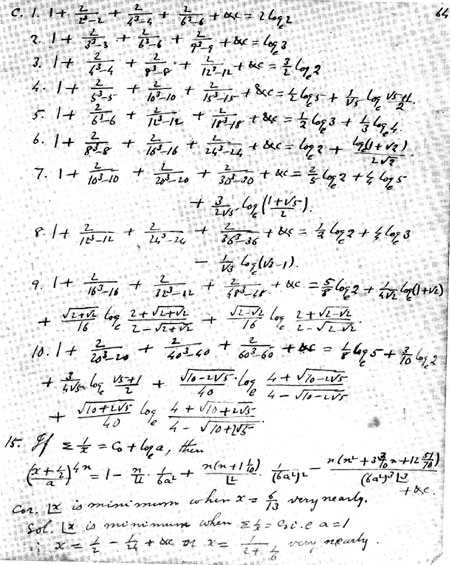 C. 1. 1 + 2/(2³-2) + 2/(4³-4) + 2/(6³-6) + &c = 2 log_e 2 64
2. 1 + 2/(3³-3) + 2/(6³-6) + 2/(9³-9) + &c = log_e 3
3. 1 + 2/(4³-4) + 2/(8³-8) + 2/(12³-12) + &c = 3/2 log_e 2
4. 1 + 2/(5³-5) + 2/(10³-10) + 2/(15³-15) + &c = 1/2 log_e 5 + 1/√5 log_e (√5+1)/2.
5. 1 + 2/(6³-6) + 2/(12³-12) + 2/(18³-18) + &c = 1/2 log_e 3 + 1/3 log_e 4.
6. 1 + 2/(8³-8) + 2/(16³-16) + 2/(24³-24) + &c = log_e 2 + log_e(1+√2)/(2√2)
7. 1 + 2/(10³-10) + 2/(20³-20) + 2/(30³-30) + &c = 2/5 log_e 2 + 1/4 log_e 5
+ 3/(2√5) log_e ((1+√5)/2).
8. 1 + 2/(12³-12) + 2/(24³-24) + 2/(36³-36) + &c = 1/2 log_e 2 + 1/4 log_e 3
- 1/√3 log_e (√3-1).
9. 1 + 2/(16³-16) + 2/(32³-32) + 2/(48³-48) + &c = 5/8 log_e 2 + 1/(4√2) log_e (1+√2)
+ √(2+√2)/16 log_e (2+√(2+√2))/(2-√(2+√2)) + √(2-√2)/16 log_e (2+√(2-√2))/(2-√(2-√2))
10. 1 + 2/(20³-20) + 2/(40³-40) + 2/(60³-60) + &c = 1/8 log_e 5 + 3/10 log_e 2
+ 3/(4√5) log_e (√5+1)/2 + √(10-2√5)/40 log_e (4+√(10-2√5))/(4-√(10-2√5))
+ √(10+2√5)/40 log_e (4+√(10+2√5))/(4-√(10+2√5)).
15. If Σ 1/x = C₀ + log a, then
((x+1/2)/a)^(4n) = 1 - n/⌊1 · 1/(6a²) + n(n+1 1/10)/⌊2 · 1/(6a²)² - n(n²+3 3/10 n+12 51/70)/((6a²)³⌊3)
+ &c.
Cor. ⌊x is minimum when x = 6/13 very nearly.
Sol. ⌊x is minimum when Σ 1/x = C₀ i.e a = 1
∴ x = 1/2 - 1/24 + &c or x = 1/(2+1/6) very nearly.